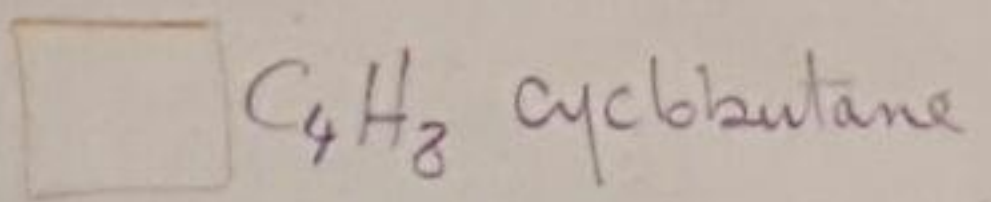 C₄H₈ cyclobutane